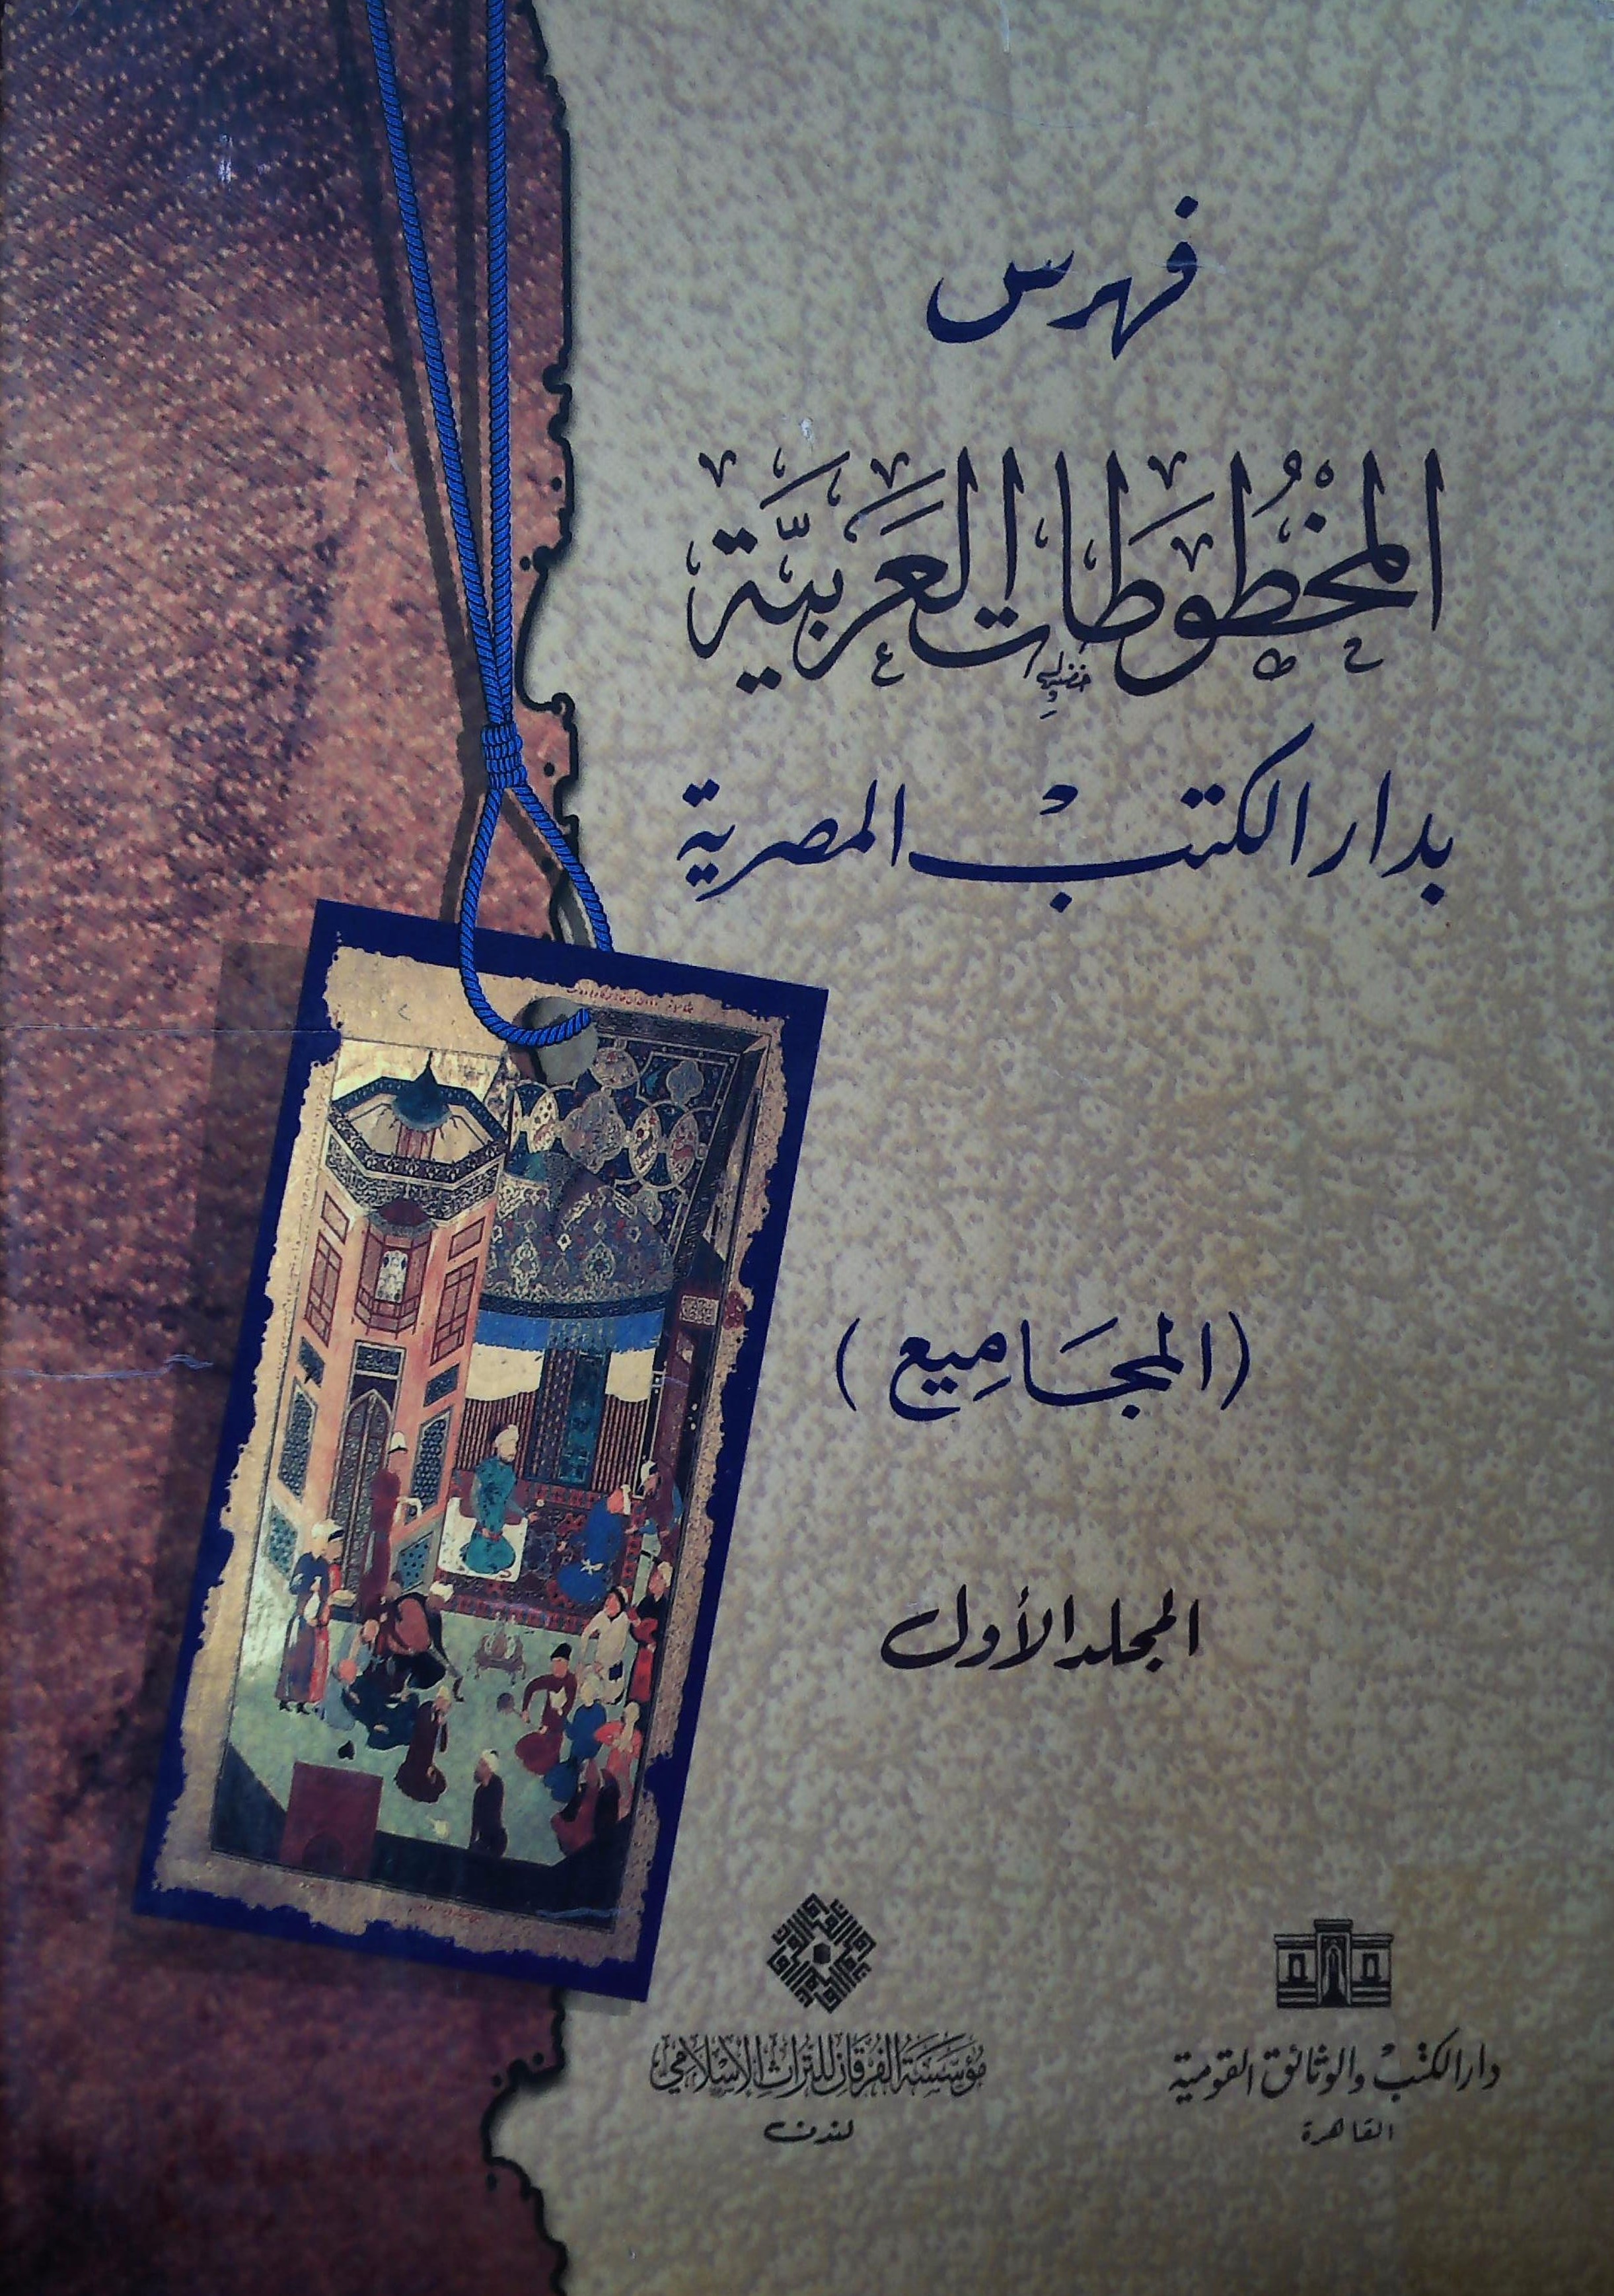 فهرس
المخْطُوطَات العَربيَّة
بدار الكتبْ المصرية
(المجَامِيع)
المجلد الأول
دار الكتبْ والوثائق القومية
القاهرة
مُؤسَّسَةُ الفُرقَان للتُراثِ الإسْلامي
لندن